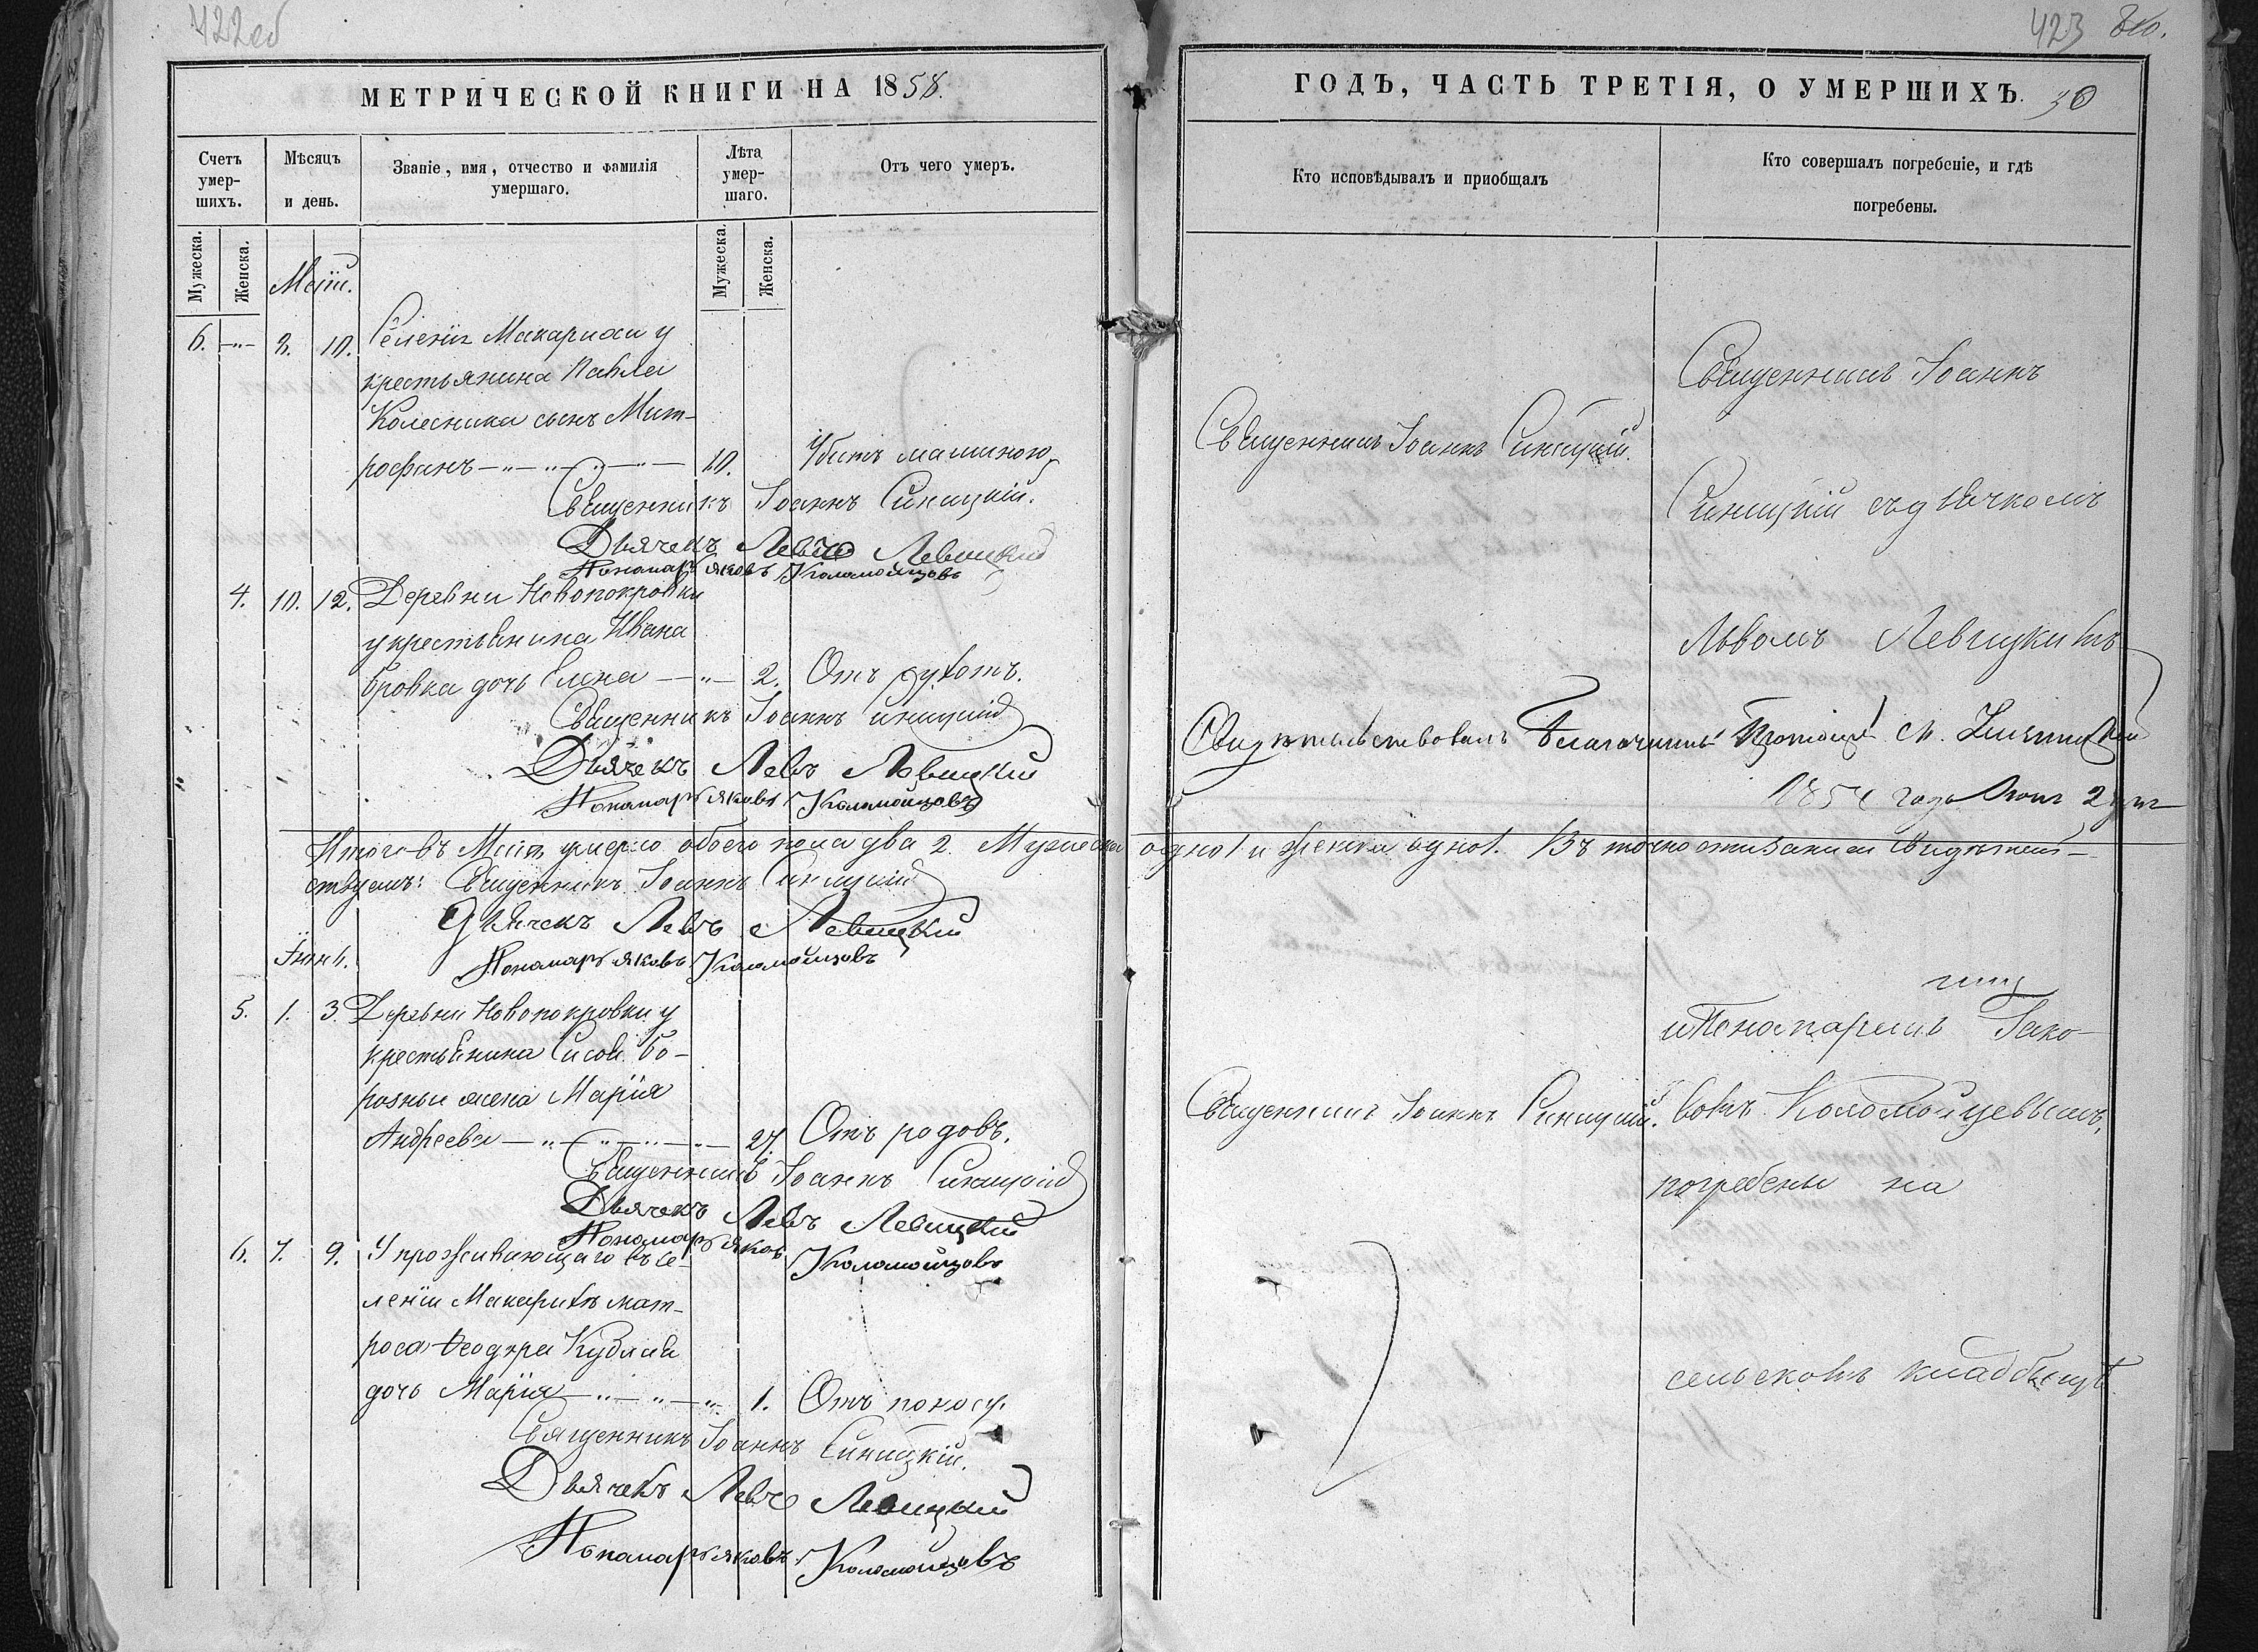 422об
МЕТРИЧЕСКОЙ КНИГИ НА 1858.
Счетъ умер-шихъ.
Мѣсяцъ и день.
Званіе, имя, отчество и фамилія умершаго.
Лѣта умер-шаго.
Отъ чего умеръ.
Мужеска.
Женска.
Мужеска.
Женска.
Маій.
6. —"— 8. 10. Селенія Макарихи у
крестьянина Павла
Колесника сынъ Мит-
рофанъ —"—"—"—"— 10. Убитъ машиною,
Священникъ Іоаннъ Синицкій.
Дьячекъ Левъ Левицкій
Пономарь Яковъ Коломойцовъ
4. 10. 12. Деревни Новопокровки
у крестьянина Ивана
Бровка дочь Елена —"— 2. Отъ сухотъ.
Священникъ Іоаннъ Синицкій
Дьячекъ Левъ Левицкій
Пономарь Яковъ Коломойцовъ
Итого въ Маіѣ умерло обоего пола два 2. Мужеска
ствуемъ: Священникъ Іоаннъ Синицкій
Дьячекъ Левъ Левицкій
Іюнь. Пономарь Яковъ Коломойцовъ
5. 1. 3. Деревни Новопокровки у
крестьянина Бо-
розны жена Марія
Андреева —"—"—"—"— 27. Отъ родовъ.
Священникъ Іоаннъ Синицкій
Дьячекъ Левъ Левицкій
Пономарь Яковъ Коломойцовъ
6. 7. 9. У проживающаго въ се-
леніи Макарихѣ мат-
роса Ѳеодора
дочь Марія —"—"—"— 1. Отъ поносу.
Священникъ Іоаннъ Синицкій.
Дьячекъ Левъ Левицкій
Пономарь Яковъ Коломойцовъ
423
ГОДЪ, ЧАСТЬ ТРЕТІЯ, О УМЕРШИХЪ.
Кто исповѣдывалъ и пріобщалъ
Кто совершалъ погребеніе, и гдѣ погребены.
Священникъ Іоаннъ
Священникъ Іоаннъ Синицкій.
Синицкій съ дьячкомъ
Львомъ Левицкимъ
Свидѣтельствовалъ Благочинный
1858 года
одно 1 и женска одно 1. Въ точности записи свидѣтель-
и Пономаремъ Іако-
Священникъ Іоаннъ Синицкій.
вомъ Коломойцевымъ,
погребены на
сельскомъ кладбищѣ